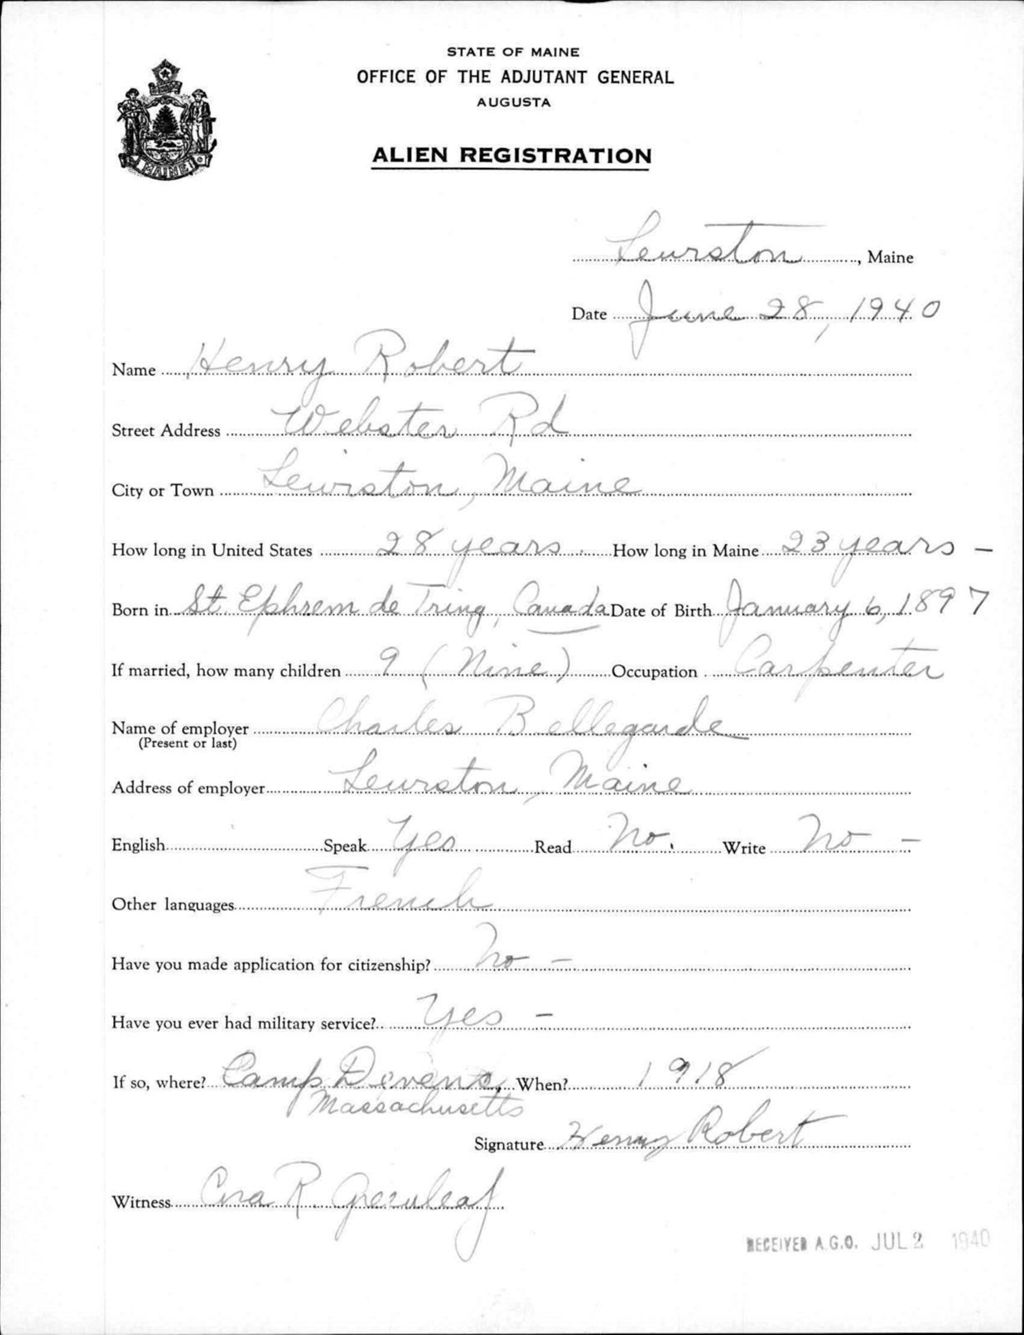 STATE OF MAINE
OFFICE OF THE ADJUTANT GENERAL
AUGUSTA
ALIEN REGISTRATION
MAINE
Lewiston, Maine
Date June 28, 1940
Name Henry Robert
Street Address Webster Rd
City or Town Lewiston, Maine
How long in United States 28 years. How long in Maine 23 years –
Born in St. Ephrem de Tring, Canada Date of Birth January 6, 1897
If married, how many children 9 (Nine) Occupation Carpenter
Name of employer Charles Bellegarde
(Present or last)
Address of employer Lewiston, Maine
English Speak Yes Read No. Write No –
Other languages French
Have you made application for citizenship? No –
Have you ever had military service? Yes –
If so, where? Camp Devens, When? 1918
Massachusetts
Signature Henry Robert
Witness Cora R. Greenleaf
RECEIVED A.G.O. JUL 2 1940